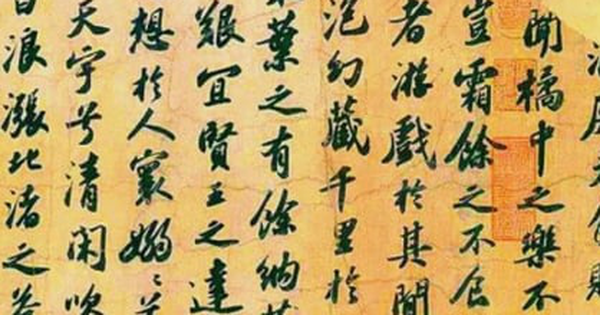 聞橘中之樂不
豈霜餘之不食
者游戲於其間
泡幻藏千里於
葉之有餘納
艱宜賢王之達
想於人寰嫋〻
天宇兮清閑吹
白浪漲北渚之